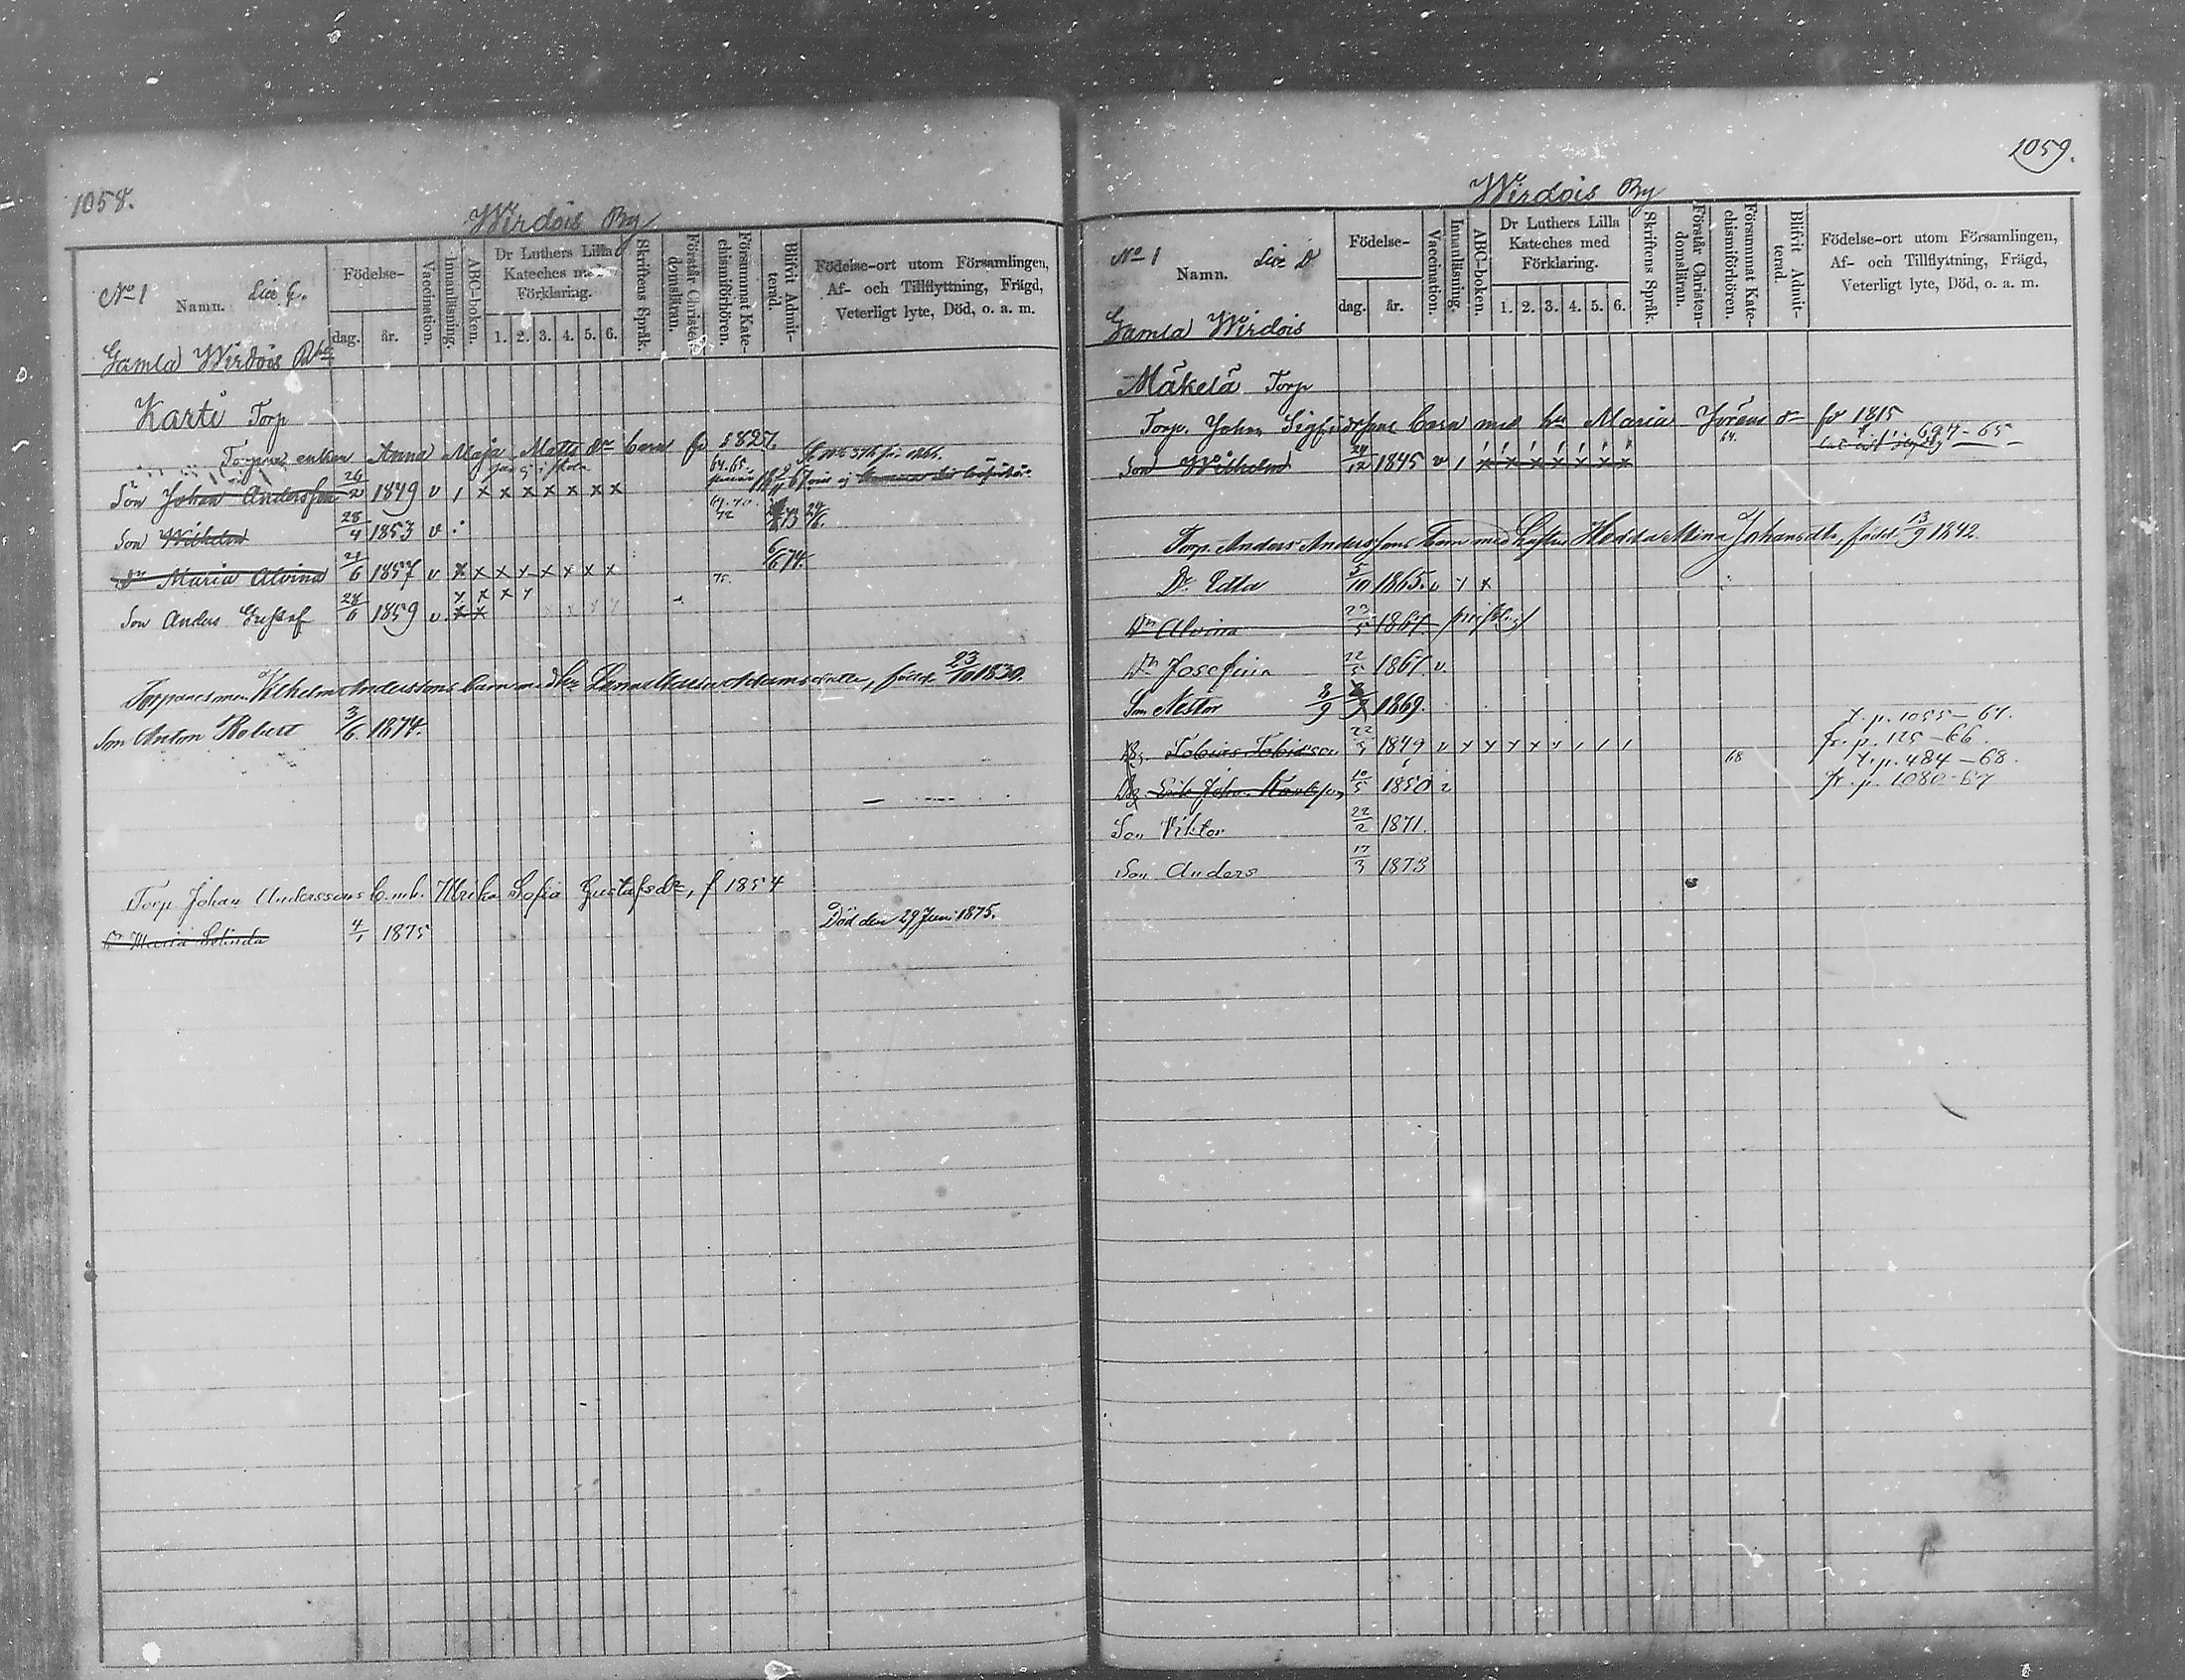 1058.
Wirdois By
No 1 Namn. Litt G.
Födelse-
dag. år.
Vaccination.
Innanläsning.
ABC-boken.
Dr Luthers Lilla Kateches med Förklaring.
1. 2. 3. 4. 5. 6.
Skriftens Språk.
Förstår Christendomsläran.
Försummat Katechismiförhören.
Blifvit Admitterad.
Födelse-ort utom Församlingen,
Af- och Tillflyttning, Frägd,
Veterligt lyte, Död, o. a. m.
Gamla Wirdois
Karti Torp
enkan Anna Maja Matts dr barn fd 1827.
Son Johan Andersson 26/2 1849 v 1 x x x x x x x 64.65.
Son Wilhelm 28/4 1853 v 72 73
Dr Maria Alvina 21/6 1857 v x x x x x x x x 6/6 74.
Son Anders Gustaf 28/6 1859 v. x x 75.
Wilhelm Anderssons barn med född 23/10 1830.
Son Anton Robert 3/6 1874.
Torp Johan Anderssons b. m. h. Ulrika Sofia Gustafsdr, f 1854
Dr Maria Selinda 4/1 1875 Död den 29 Juni 1875.
1059.
Wirdois By
No 1 Namn. Litt D
Födelse-
dag. år.
Vaccination.
Innanläsning.
ABC-boken.
Dr Luthers Lilla Kateches med Förklaring.
1. 2. 3. 4. 5. 6.
Skriftens Språk.
Förstår Christendomsläran.
Försummat Katechismiförhören.
Blifvit Admitterad.
Födelse-ort utom Församlingen,
Af- och Tillflyttning, Frägd,
Veterligt lyte, Död, o. a. m.
Gamla Wirdois
Mäkelä Torp
Torp. Johan Sigfridssons barn med hu Maria Jörans dr fd 1815
Son Wilhelm 24/12 1845 v 1 x x x x x x x 64. 694-65
Torp. Anders Anderssons barn med hustru Hedda Mina Johansdtr, född 13/9 1842.
Dr Edla 5/10 1865. v x x
Dr Alvina 23/5 1867.
Dr Josefina 22/5 1867. v.
Son Nestor 8/9 1869.
Dg. Tobias Tobiasson 22/3 1849 v x x x x x 1 1 1 t. p. 1055-67. fr. p. 125-66.
Dg Erik Johan Karlsson 10/5 1850 v 68 t. p. 484-68. fr. p. 1080-67
Son Viktor 22/2 1871.
Son Anders 17/3 1873